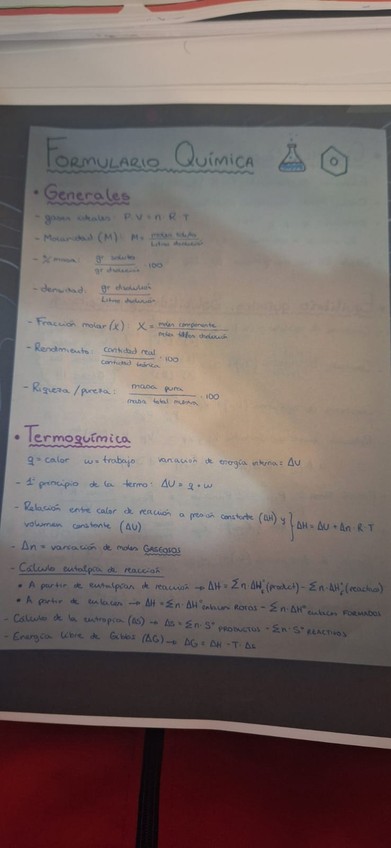 FORMULARIO QUÍMICA
• Generales
- gases ideales: P·V = n·R·T
- Molaridad (M): M = moles soluto / Litros disolución
- % masa: gr soluto / gr disolución · 100
- densidad: gr disolución / Litros disolución
- Fracción molar (X) X = moles componente / moles totales disolución
- Rendimiento: cantidad real / cantidad teórica · 100
- Riqueza / pureza: masa pura / masa total · 100
• Termoquímica
q = calor w = trabajo variación de energía interna = ΔU
- 1er principio de la termo: ΔU = q + w
- Relación entre calor de reacción a presión constante (ΔH) y
volumen constante (ΔU) } ΔH = ΔU + Δn·R·T
- Δn = variación de moles GASEOSOS
- Cálculo entalpía de reacción
• A partir de entalpías de reacción → ΔH = Σn·ΔH°f (product) - Σn·ΔH°f (reactivo)
• A partir de enlaces → ΔH = Σn·ΔH° enlaces ROTOS - Σn·ΔH° enlaces FORMADOS
- Cálculo de la entropía (ΔS) → ΔS = Σn·S° PRODUCTOS - Σn·S° REACTIVOS
- Energía libre de Gibbs (ΔG) → ΔG = ΔH - T·Δs